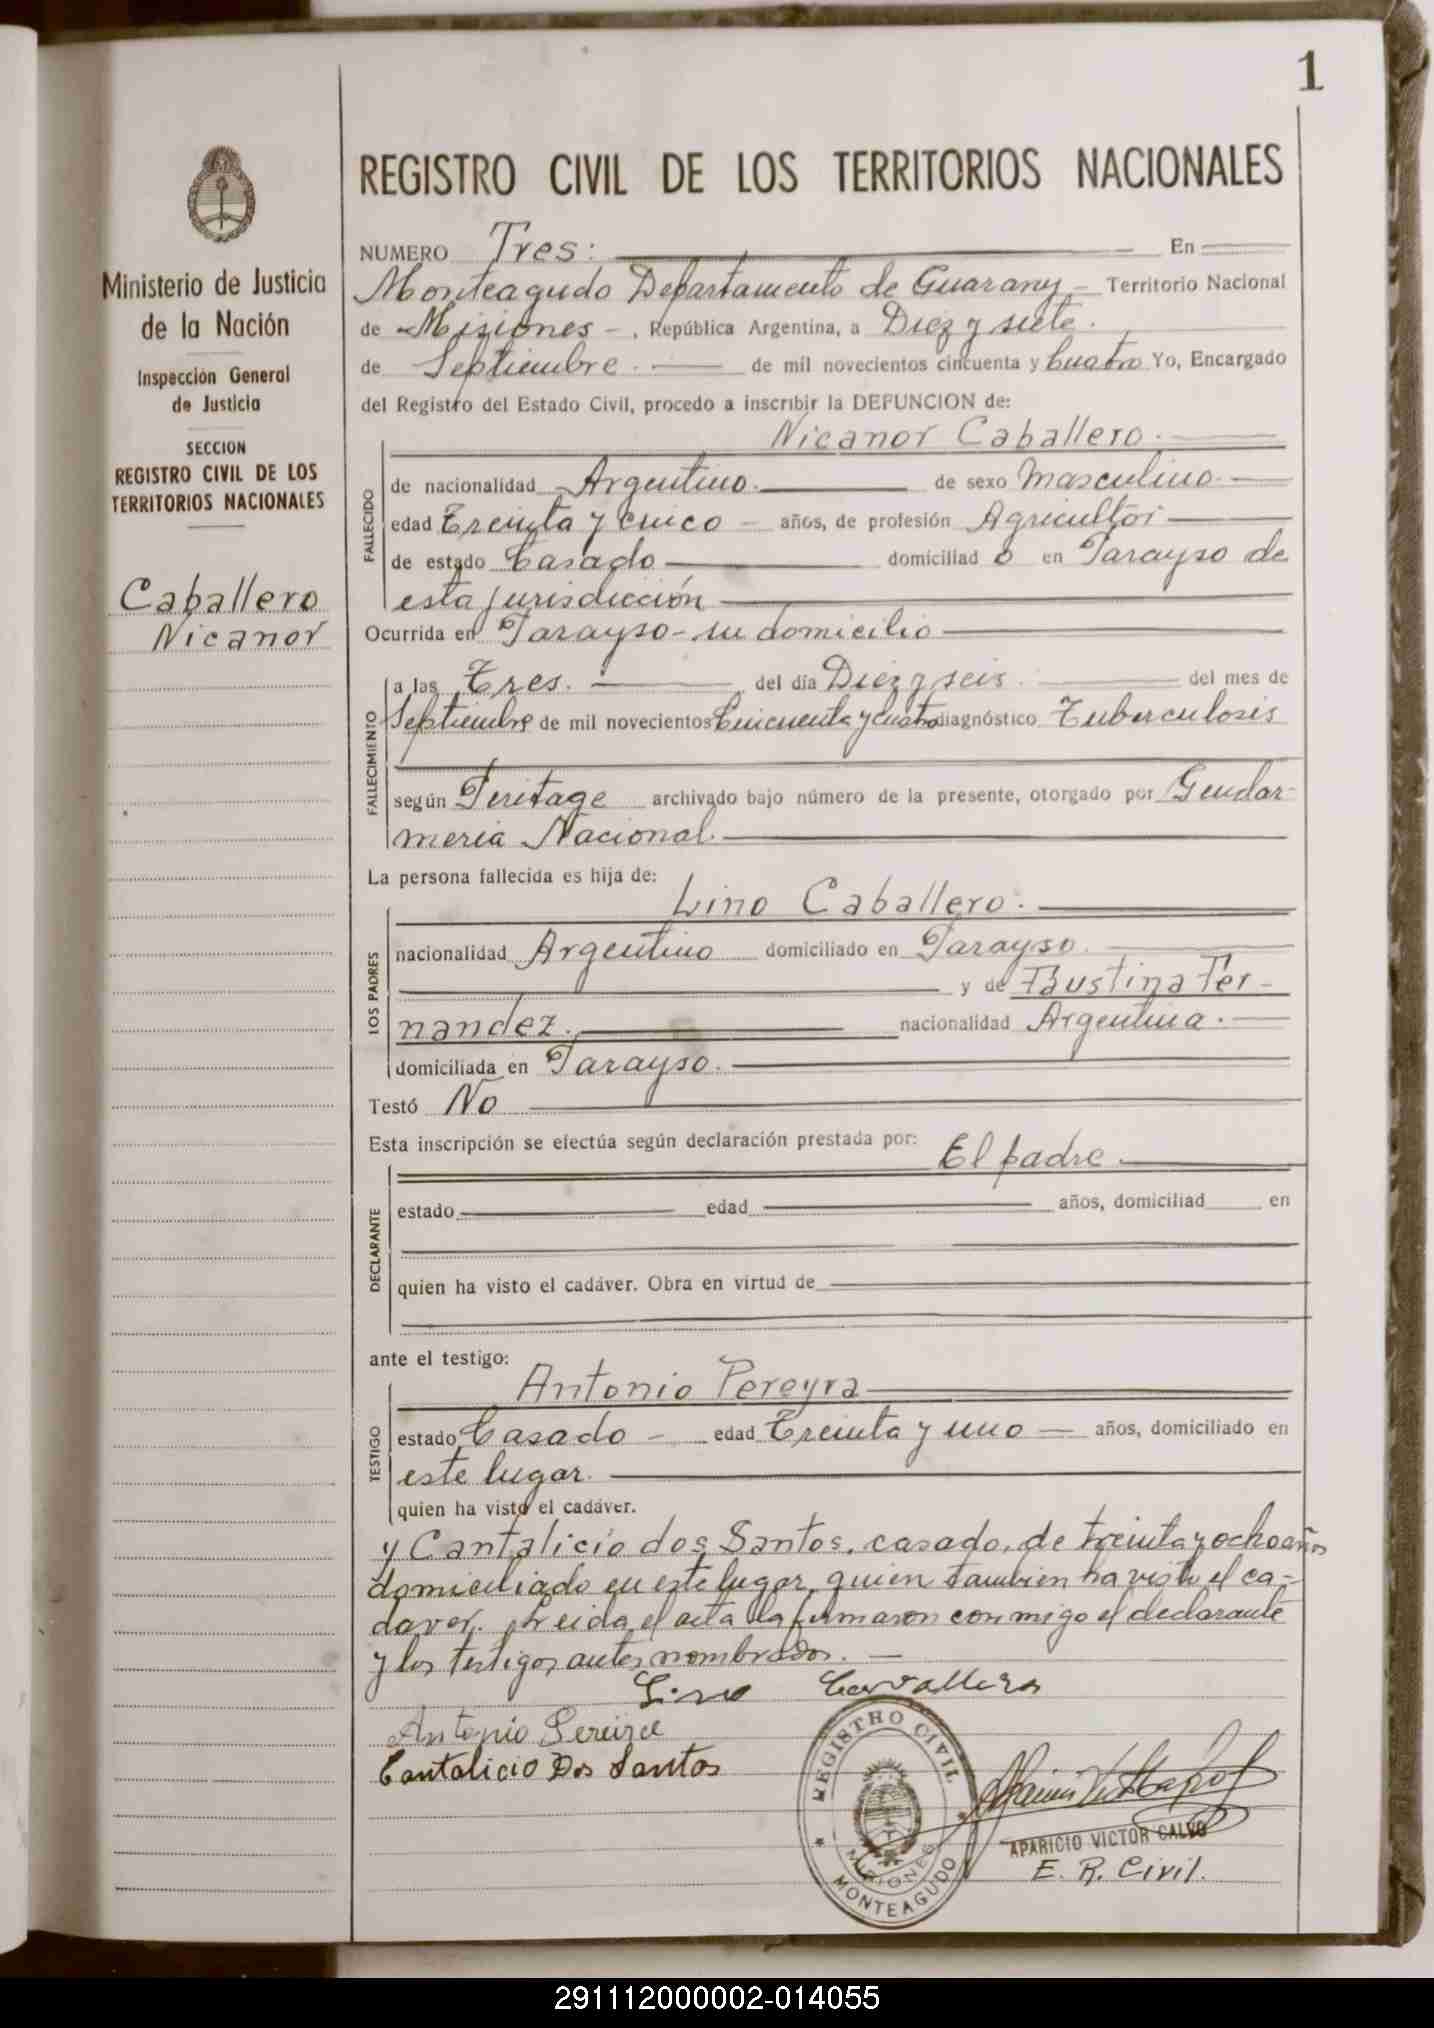 1
Ministerio de Justicia
de la Nación
Inspección General
de Justicia
SECCION
REGISTRO CIVIL DE LOS
TERRITORIOS NACIONALES
Caballero
Nicanor
REGISTRO CIVIL DE LOS TERRITORIOS NACIONALES
NUMERO Tres: En
Monteagudo Departamento de Guarany - Territorio Nacional
de Misiones - , República Argentina, a Diez y siete.
de Septiembre. de mil novecientos cincuenta y Cuatro Yo, Encargado
del Registro del Estado Civil, procedo a inscribir la DEFUNCION de:
Nicanor Caballero.
FALLECIDO
de nacionalidad Argentino. de sexo Masculino.
edad Treinta y cinco - años, de profesión Agricultor
de estado Casado domiciliad o en Parayso de
esta jurisdicción
Ocurrida en Parayso - su domicilio
FALLECIMIENTO
a las Tres. del día Diez y seis. del mes de
Septiembre de mil novecientos Cincuenta y Cuatro diagnóstico Tuberculosis
según Peritage archivado bajo número de la presente, otorgado por Gendar-
meria Nacional.
La persona fallecida es hija de:
Lino Caballero.
LOS PADRES
nacionalidad Argentino domiciliado en Parayso.
y de Faustina Fer-
nandez. nacionalidad Argentina.
domiciliada en Parayso.
Testó No
Esta inscripción se efectúa según declaración prestada por: El padre.
DECLARANTE
estado edad años, domiciliad en
quien ha visto el cadáver. Obra en virtud de
ante el testigo:
Antonio Pereyra
TESTIGO
estado Casado - edad Treinta y uno - años, domiciliado en
este lugar.
quien ha visto el cadáver.
y Cantalicio dos Santos, casado, de treinta y ocho años
domiciliado en este lugar, quien tambien ha visto el ca-
daver. Leida el acta la firmaron conmigo el declarante
y los testigos antes nombrados. -
Lino Carvallero
Antonio Pereira
Cantalicio Dos Santos
REGISTRO CIVIL
MISIONES
MONTEAGUDO
APARICIO VICTOR CALVO
E. R. Civil.
291112000002-014055